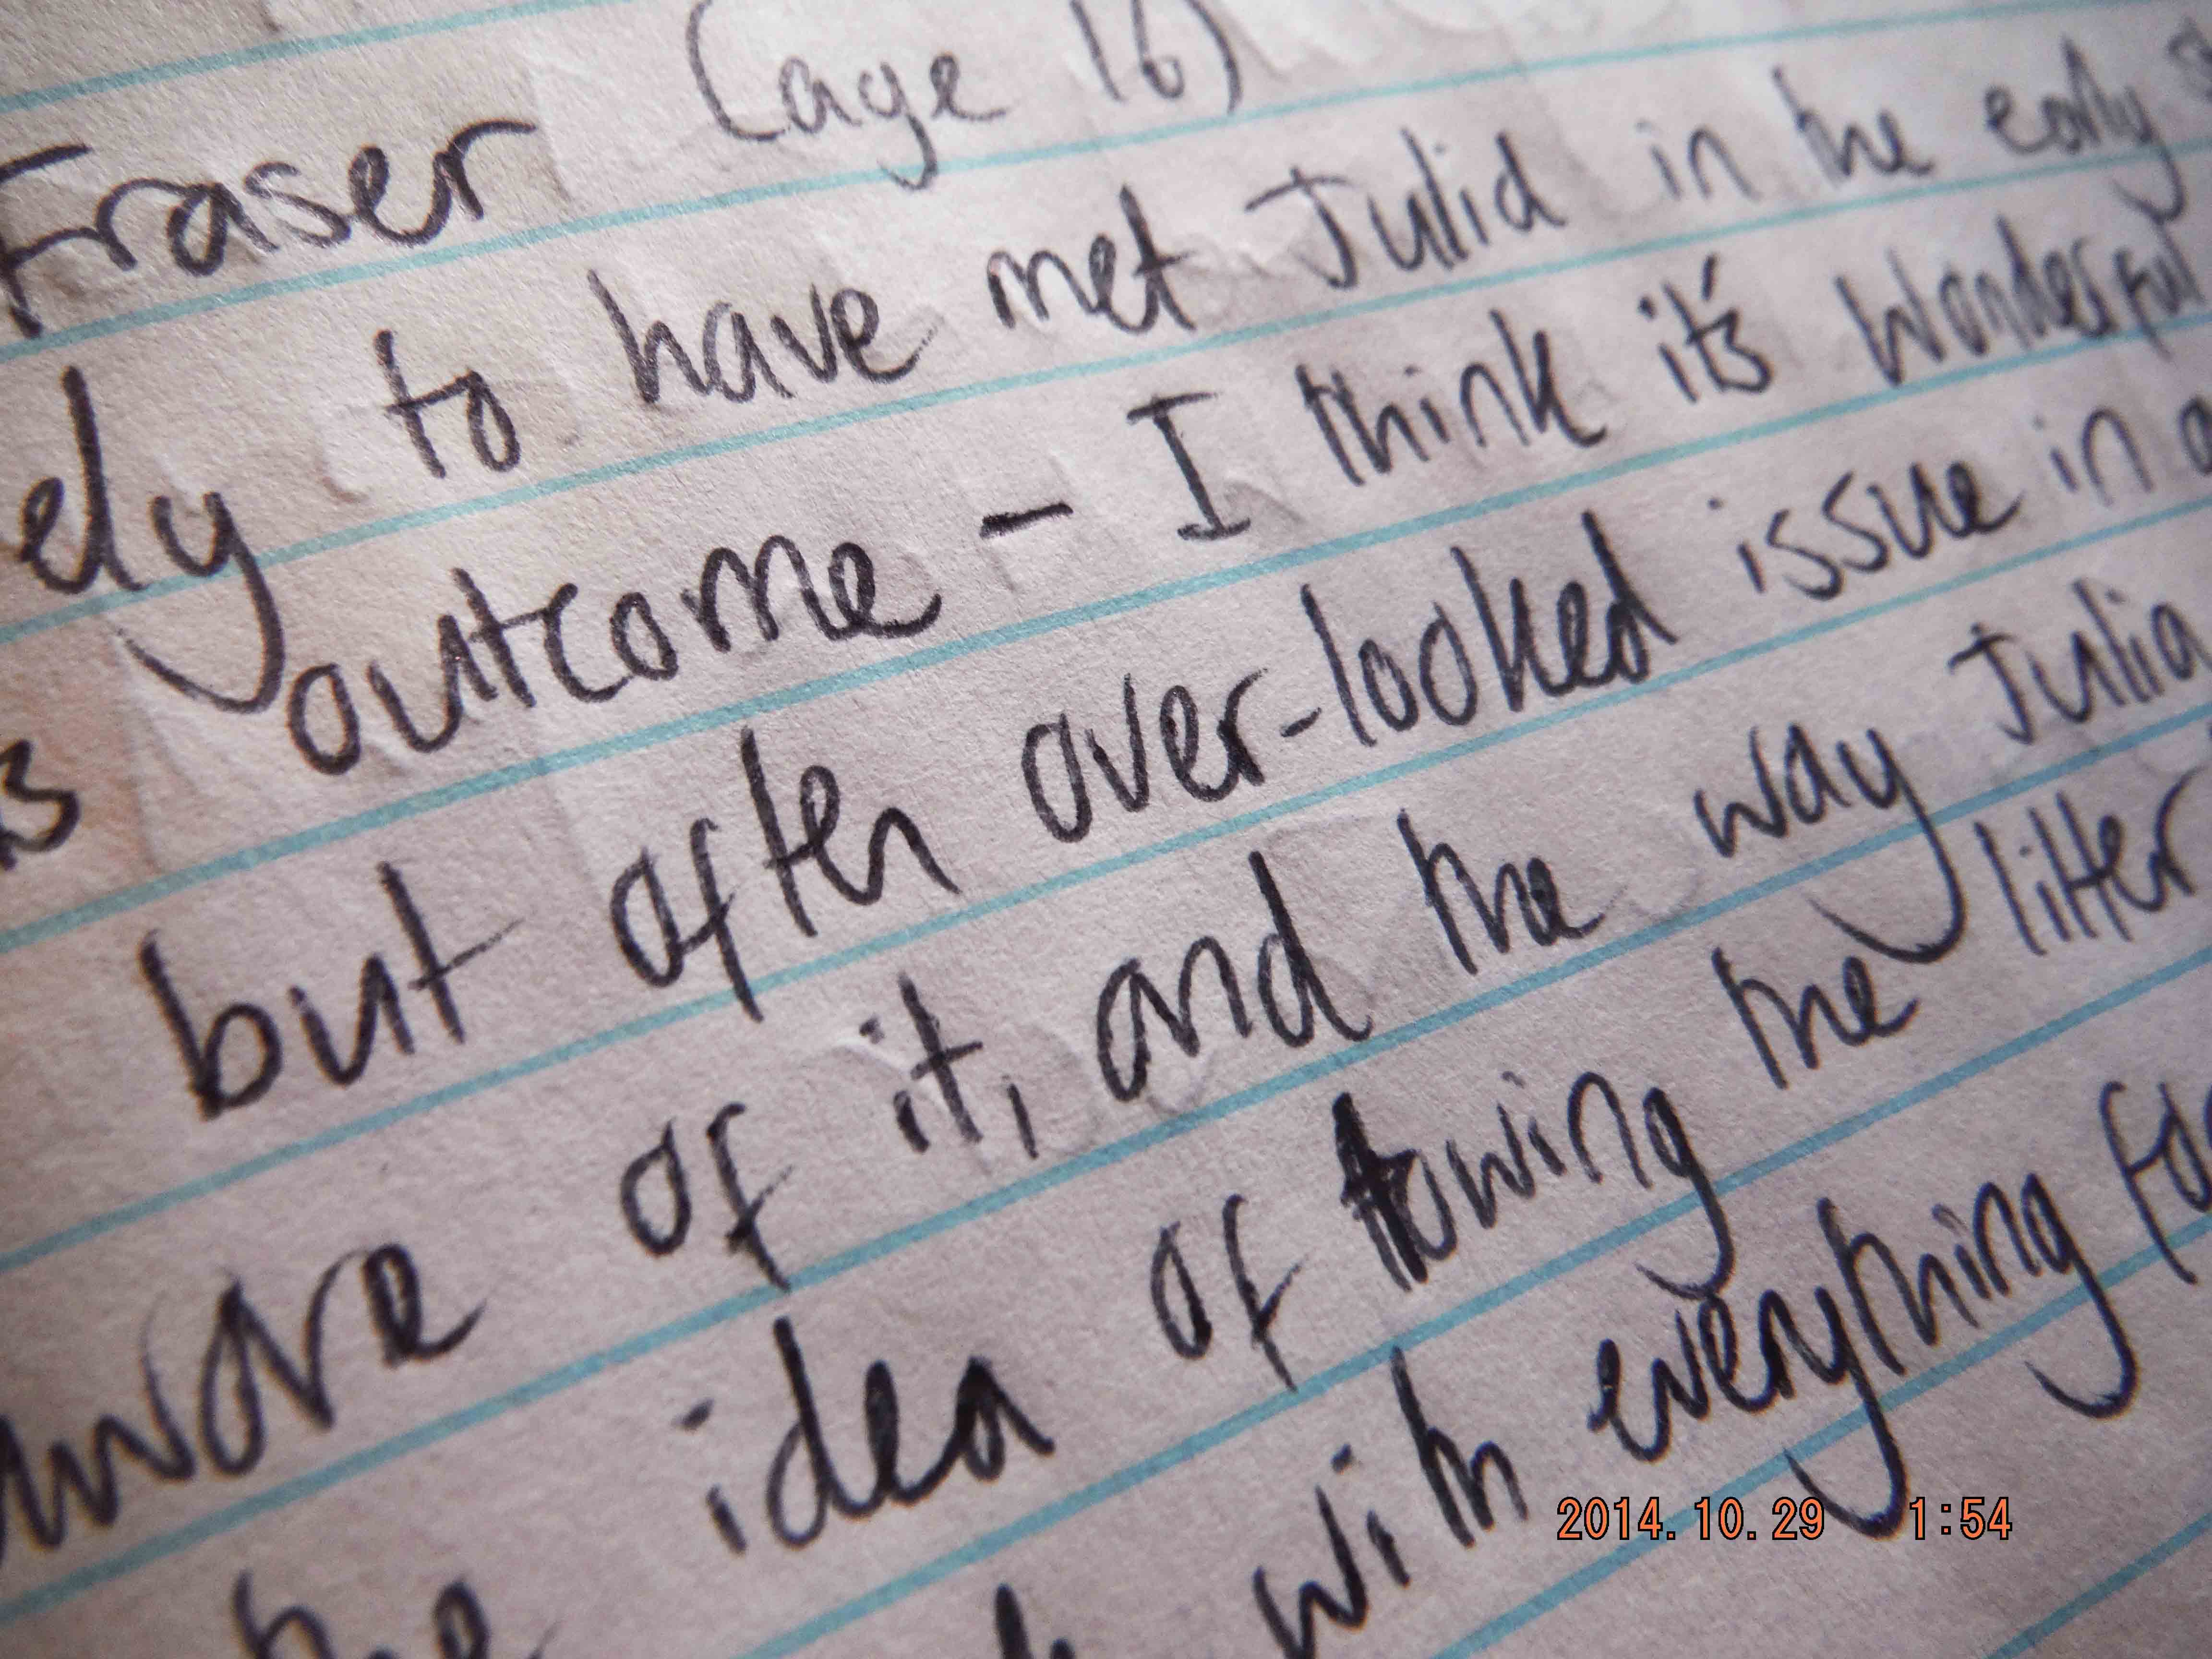 Fraser (age 16)
ely to have met Julia in the early
outcome - I think it's wonderful
but often over-looked issue in a
aware of it, and the way Julia
the idea of towing the litter
with everything fo
2014.10.29 1:54